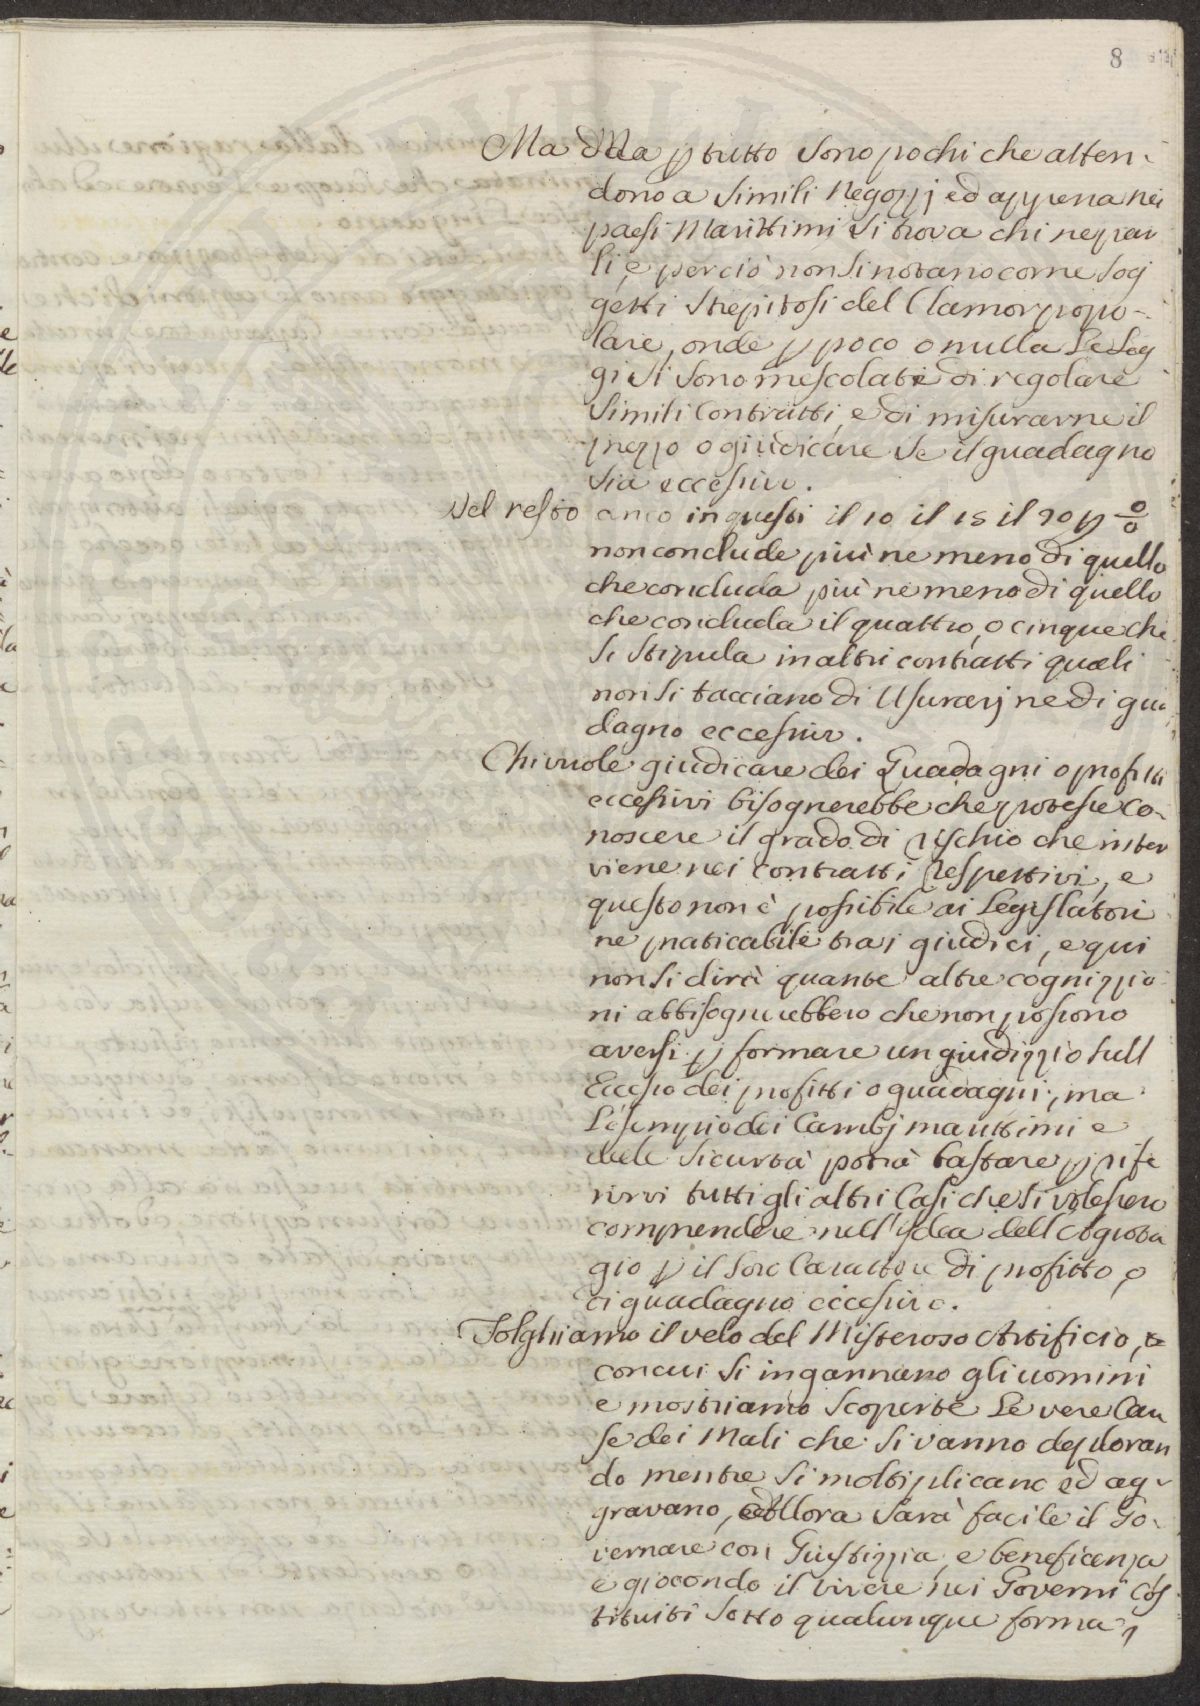 8
Ma Ma p tutto sono pochi che atten-
dono a simili Negozzj ed appena nei
paesi Marittimi si trova chi ne par
li, e perciò non si notano come sog
getti strepitosi del Clamor popo-
lare, onde p poco o nulla Le Leg
gi si sono mescolate di regolare
simili Contratti, e di misurarne il
prezzo o giudicare se il guadagno
sia eccessivo.
Nel resto anco in questi il 10 il 15 il 20 p %
non conclude più ne meno di quello
che concluda più ne meno di quello
che concluda il quattro, o cinque che
si stipula in altri contratti quali
non si tacciano di Usurarj ne di gua
dagno eccessivo.
Chi vuole giudicare dei Guadagni o profitti
eccessivi bisognerebbe che potesse co-
noscere il grado di rischio che inter
viene nei contratti respettivi, e
questo non è possibile ai Legislatori
ne praticabile tra i giudici, e qui
non si dirà quante altre cognizzio-
ni abbisognerebbero che non possono
aversi p formare un giudizzio sull
Eccesso dei profitti o guadagni; ma
L'esempio dei Cambj marittimi e
delle sicurtà potrà bastare p rife
rirvi tutti gli altri Casi che si volessero
comprendere nell'idea dell Agiota
gio p il loro Carattere di profitto, o
di guadagno eccessivo.
Tolghiamo il velo del Misterioso Artificio,
con cui si ingannano gli uomini
e mostriamo scoperte Le vere Cau
se dei Mali che si vanno deploran
do mentre si moltiplicano ed ag-
gravano, allora sarà facile il Go-
vernare con Giustizzia, e beneficenza
e giocondo il vivere nei Governi Cos
tituiti sotto qualunque forma,